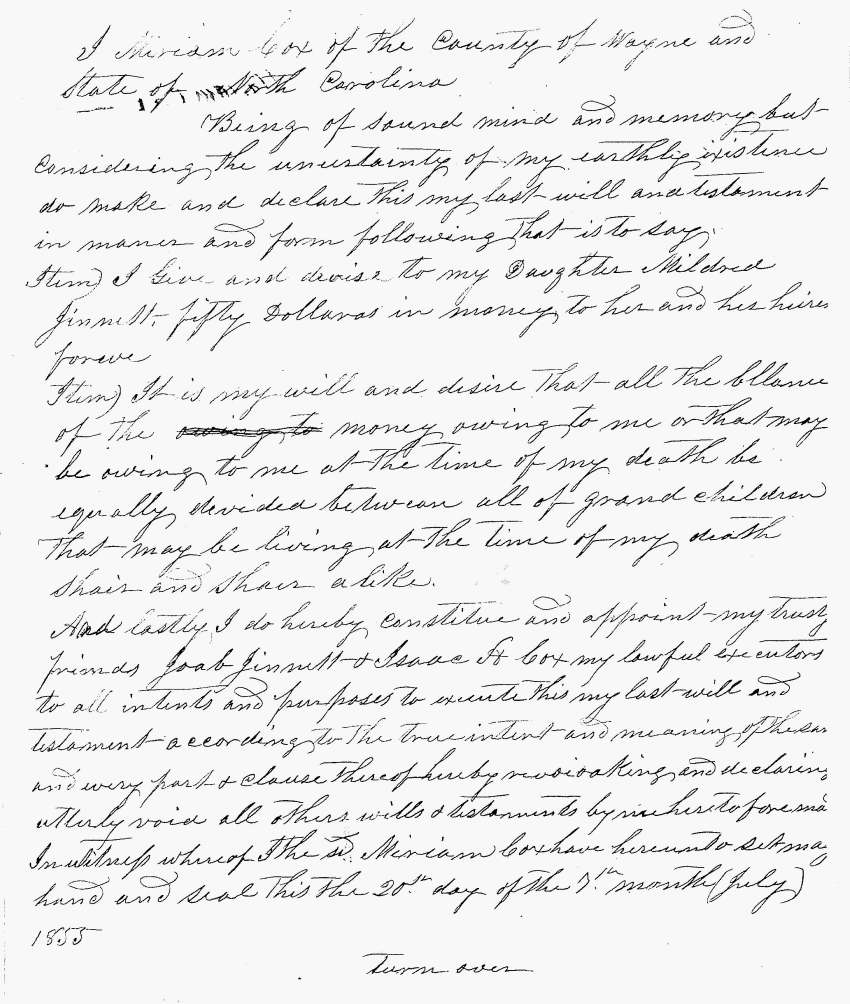 I Miriam Cox of the County of Wayne and
State of North Carolina
Being of sound mind and memory but
considering the uncertainty of my earthly existence
do make and declare this my last will and testament
in maner and form following that is to say
Item) I Give and devise to my Daughter Mildred
Jinnett, fifty Dollaras in money to her and her heires
foreve
Item) It is my will and desire that all the bllance
of the owing to money owing to me or that may
be owing to me at the time of my death be
equally devided between all of grand children
that may be living at the time of my death
shair and shair alike.
And lastly I do hereby constitue and appoint my trusty
frinds Joab Jinnett & Isaac H Cox my lawful executors
to all intents and purposes to execute this my last will and
testament according to the true intent and meaning of the sam
and every part & clause thereof hereby revoioaking and declaring
utterly void all others wills & testaments by me heretofore ma
In witness whereof I the sd. Miriam Cox have hereunto set my
hand and seal this the 20th day of the 7th month (July)
1855
turn over